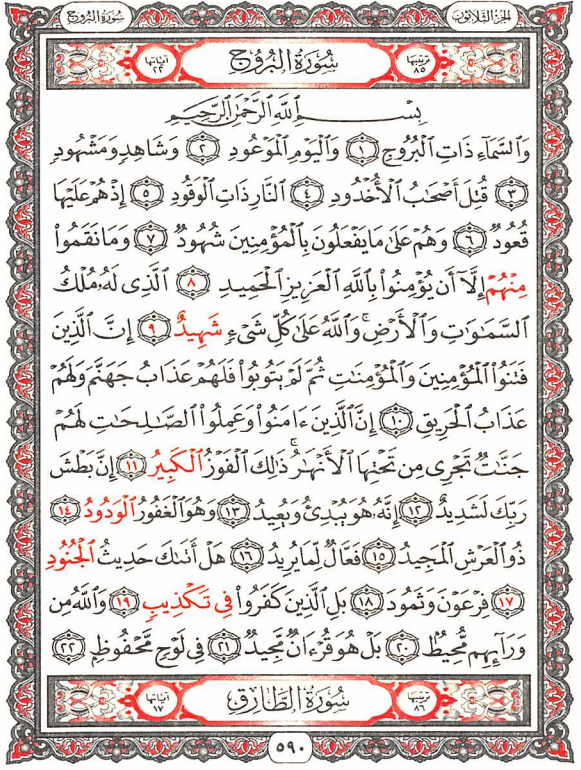 سُورَةُ البُرُوج الجُزءُ الثَّلَاثُونَ
آيَاتُهَا ٢٢ سُورَةُ البُرُوجِ تَرتِيبُهَا ٨٥
بِسْمِ اللَّهِ الرَّحْمَٰنِ الرَّحِيمِ
وَٱلسَّمَآءِ ذَاتِ ٱلْبُرُوجِ ١ وَٱلْيَوْمِ ٱلْمَوْعُودِ ٢ وَشَاهِدٍ وَمَشْهُودٍ
٣ قُتِلَ أَصْحَٰبُ ٱلْأُخْدُودِ ٤ ٱلنَّارِ ذَاتِ ٱلْوَقُودِ ٥ إِذْ هُمْ عَلَيْهَا
قُعُودٌ ٦ وَهُمْ عَلَىٰ مَا يَفْعَلُونَ بِٱلْمُؤْمِنِينَ شُهُودٌ ٧ وَمَا نَقَمُوا۟
مِنْهُمْ إِلَّآ أَن يُؤْمِنُوا۟ بِٱللَّهِ ٱلْعَزِيزِ ٱلْحَمِيدِ ٨ ٱلَّذِى لَهُۥ مُلْكُ
ٱلسَّمَٰوَٰتِ وَٱلْأَرْضِ ۚ وَٱللَّهُ عَلَىٰ كُلِّ شَىْءٍ شَهِيدٌ ٩ إِنَّ ٱلَّذِينَ
فَتَنُوا۟ ٱلْمُؤْمِنِينَ وَٱلْمُؤْمِنَٰتِ ثُمَّ لَمْ يَتُوبُوا۟ فَلَهُمْ عَذَابُ جَهَنَّمَ وَلَهُمْ
عَذَابُ ٱلْحَرِيقِ ١٠ إِنَّ ٱلَّذِينَ ءَامَنُوا۟ وَعَمِلُوا۟ ٱلصَّٰلِحَٰتِ لَهُمْ
جَنَّٰتٌ تَجْرِى مِن تَحْتِهَا ٱلْأَنْهَٰرُ ۚ ذَٰلِكَ ٱلْفَوْزُ ٱلْكَبِيرُ ١١ إِنَّ بَطْشَ
رَبِّكَ لَشَدِيدٌ ١٢ إِنَّهُۥ هُوَ يُبْدِئُ وَيُعِيدُ ١٣ وَهُوَ ٱلْغَفُورُ ٱلْوَدُودُ ١٤
ذُو ٱلْعَرْشِ ٱلْمَجِيدُ ١٥ فَعَّالٌ لِّمَا يُرِيدُ ١٦ هَلْ أَتَىٰكَ حَدِيثُ ٱلْجُنُودِ
١٧ فِرْعَوْنَ وَثَمُودَ ١٨ بَلِ ٱلَّذِينَ كَفَرُوا۟ فِى تَكْذِيبٍ ١٩ وَٱللَّهُ مِن
وَرَآئِهِم مُّحِيطٌۢ ٢٠ بَلْ هُوَ قُرْءَانٌ مَّجِيدٌ ٢١ فِى لَوْحٍ مَّحْفُوظٍۭ ٢٢
آيَاتُهَا ١٧ سُورَةُ الطَّارِقِ تَرتِيبُهَا ٨٦
٥٩٠